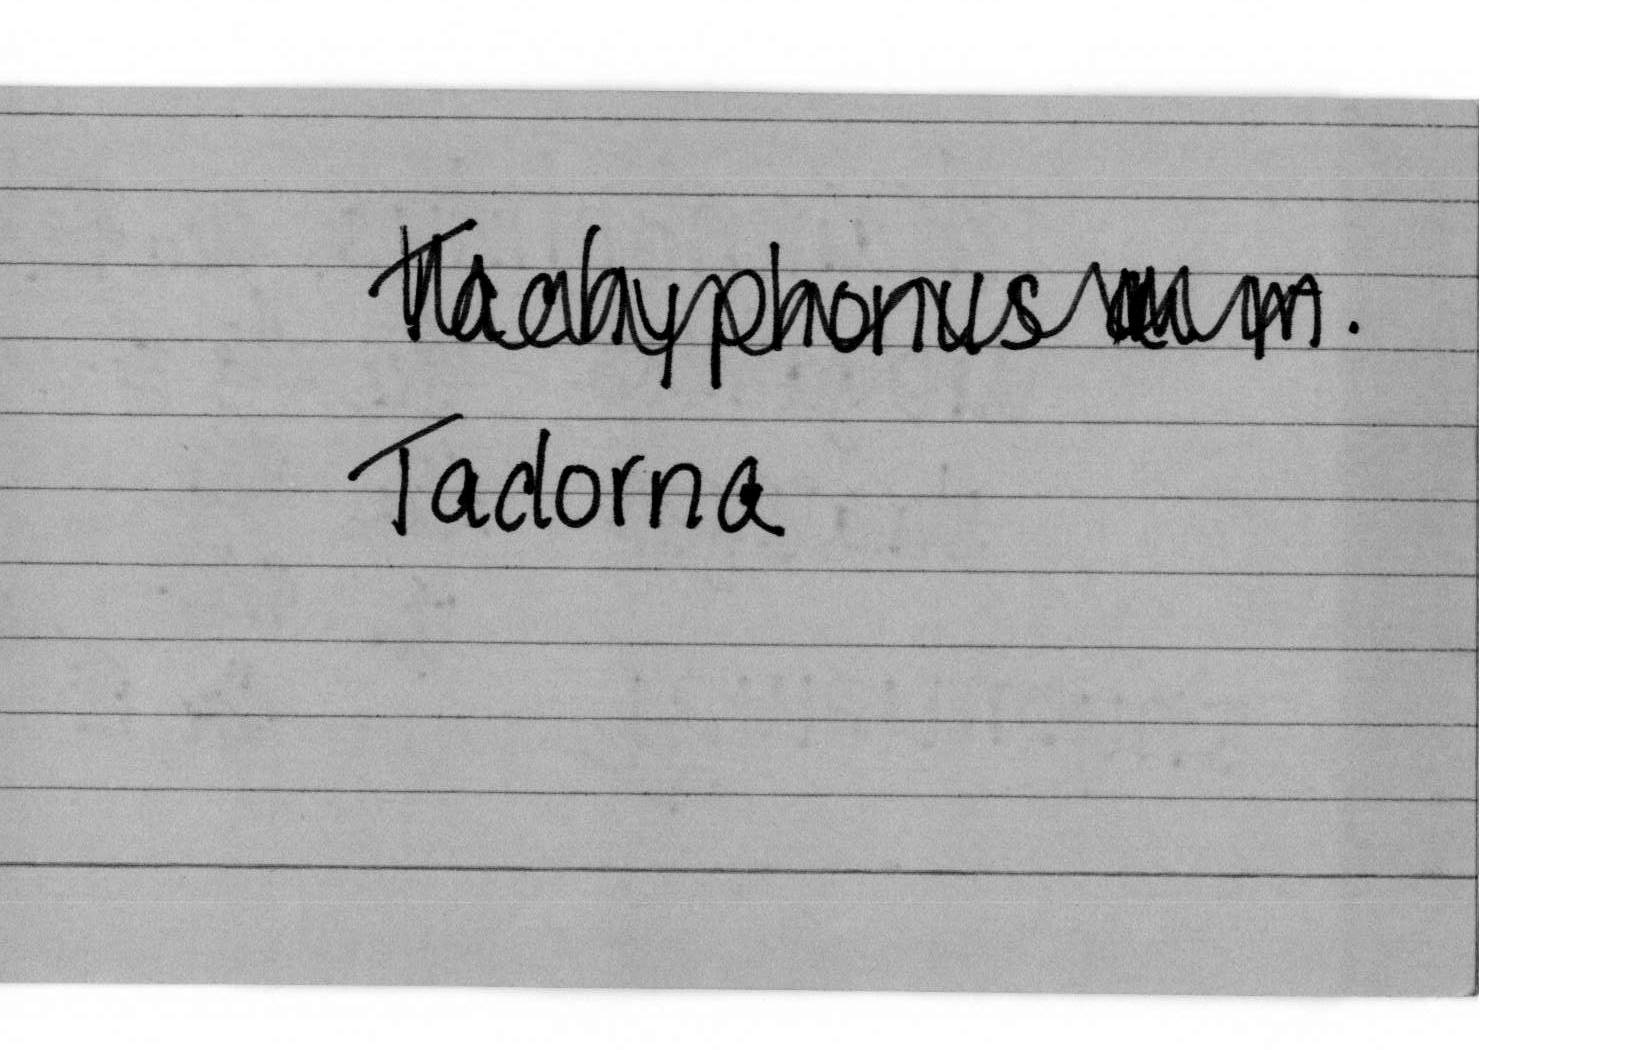 Tachyphonus
Tadorna